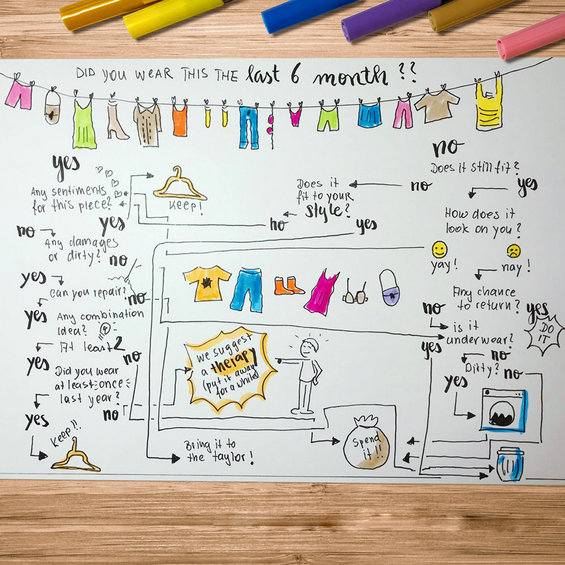 DID YOU WEAR THIS THE last 6 month ??
yes
Any sentiments
for this piece?
no
yes
KEEP!
Any damages
or dirty?
no
yes
Can you repair?
no
yes
Any combination
idea?
At least 2
yes
no
Did you wear
at least once
last year?
yes
no
KEEP!!
no
Does it still fit?
no
yes
Does it
fit to your
style?
no
yes
How does it
look on you?
yay!
nay!
Any chance
to return?
no
yes
DO
IT
is it
underwear?
yes
no
Dirty?
no
yes
we suggest
a therapy
(put it away
for a while)
Bring it to
the taylor!
Spend
it!!